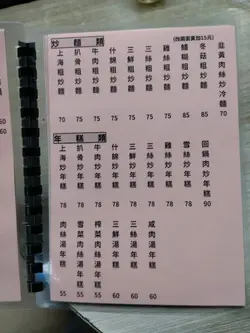 炒麵類
(改兩面黃加15元)
上海粗炒 70
扒骨粗炒 75
牛肉粗炒 75
什錦粗炒 75
三鮮粗炒 75
三絲粗炒 75
雞絲粗炒 75
鱔糊粗炒 85
冬菇粗炒 85
韭黃肉絲炒冷麵 70
年糕類
上海炒年糕 78
扒骨炒年糕 78
牛肉炒年糕 78
什錦炒年糕 78
三鮮炒年糕 78
三絲炒年糕 78
雞絲炒年糕 78
雪絲炒年糕 78
回鍋肉炒年糕 90
肉絲湯年糕 55
雪菜肉絲湯年糕 55
榨菜肉絲湯年糕 55
三鮮湯年糕 60
三絲湯年糕 60
鹹肉絲湯年糕 60